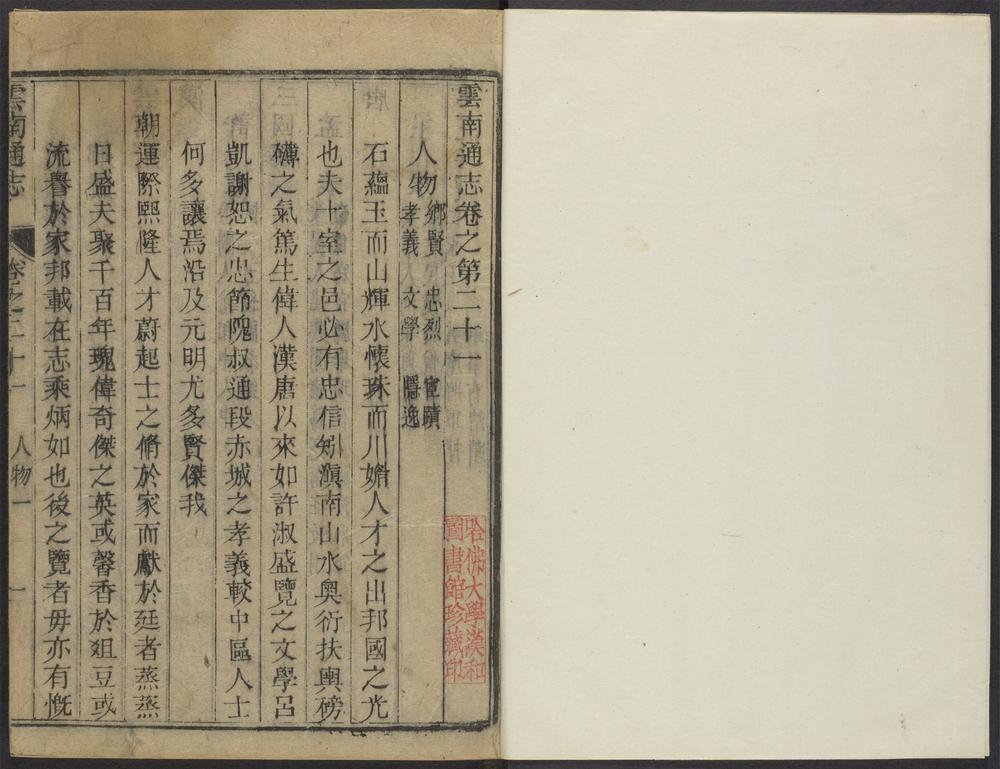 雲南通志卷之第二十一
人物 鄉賢 忠烈 宦蹟
孝義 文學 隱逸
石蘊玉而山輝水懷珠而川媚人才之出邦國之光
也夫十室之邑必有忠信矧滇南山水奧衍扶輿磅
礴之氣篤生偉人漢唐以來如許淑盛覽之文學呂
凱謝恕之忠節隗叔通段赤城之孝義較中區人士
何多讓焉沿及元明尤多賢傑我
朝運際熙隆人才蔚起士之脩於家而獻於廷者蒸蒸
日盛夫聚千百年瑰偉奇傑之英或馨香於俎豆或
流譽於家邦載在志乘炳如也後之覽者毋亦有慨
雲南通志 卷之二十一 人物一 一
哈佛大學漢和
圖書館珍藏印